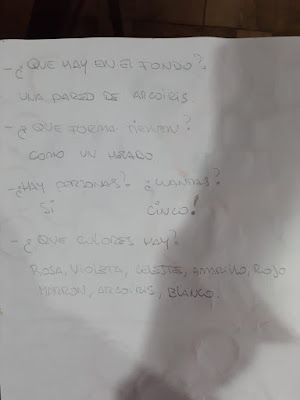 - ¿QUE HAY EN EL FONDO?
UNA PARED DE ARCOIRIS.
- ¿QUE FORMA TIENEN?
COMO UN HELADO
- ¿HAY PERSONAS? ¿CUANTAS?
SI CINCO!
- ¿QUE COLORES HAY?
ROSA, VIOLETA, CELESTE, AMARILLO, ROJO
MARRON, ARCOIRIS, BLANCO.